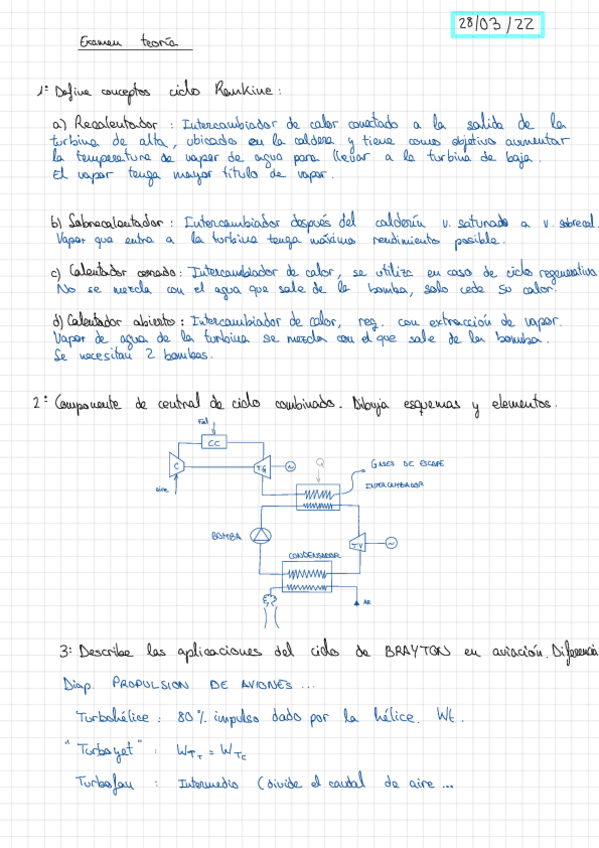 28/03/22
Examen teoría
1: Define conceptos ciclo Rankine:
a) Recalentador: Intercambiador de calor conectado a la salida de la
turbina de alta, ubicado en la caldera y tiene como objetivo aumentar
la temperatura de vapor de agua para llevar a la turbina de baja.
El vapor tenga mayor título de vapor.
b) Sobrecalentador: Intercambiador después del calderín v. saturado a v. sobrecal.
Vapor que entra a la turbina tenga máximo rendimiento posible.
c) Calentador cerrado: Intercambiador de calor, se utiliza en caso de ciclo regenerativo
No se mezcla con el agua que sale de la bomba, solo cede su calor.
d) Calentador abierto: Intercambiador de calor, reg. con extracción de vapor.
Vapor de agua de la turbina se mezcla con el que sale de la bomba.
Se necesitan 2 bombas.
2: Componente de central de ciclo combinado. Dibuja esquemas y elementos.
CC
C
TG
~
Q
GASES DE ESCAPE
INTERCAMBIADOR
BOMBA
TV
~
CONDENSADOR
3: Describe las aplicaciones del ciclo de BRAYTON en aviación. Diferencia
Diap. PROPULSION DE AVIONES ...
Turbohélice: 80% impulso dado por la hélice. Wt.
"Turboyet": WTT = WTC
Turbofan: Intermedio (divide el caudal de aire ...